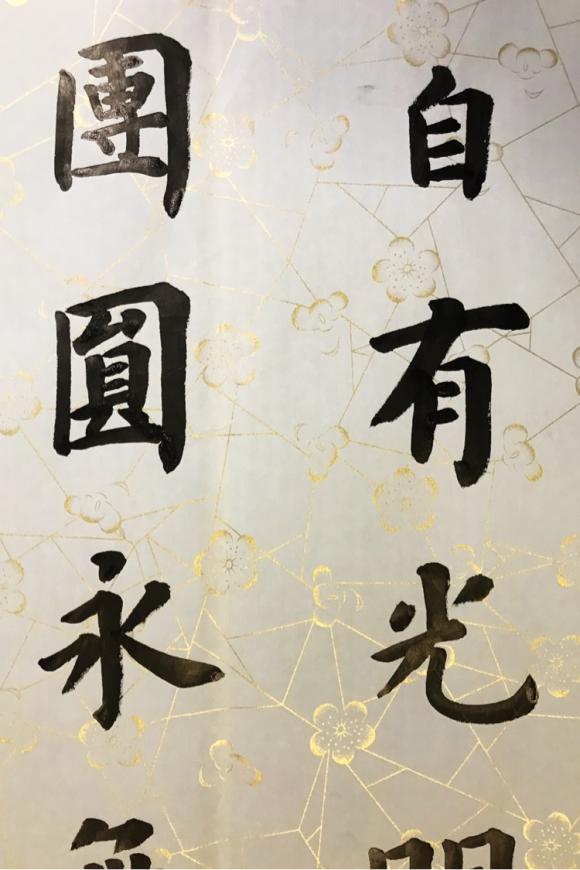 自有光
團圓永